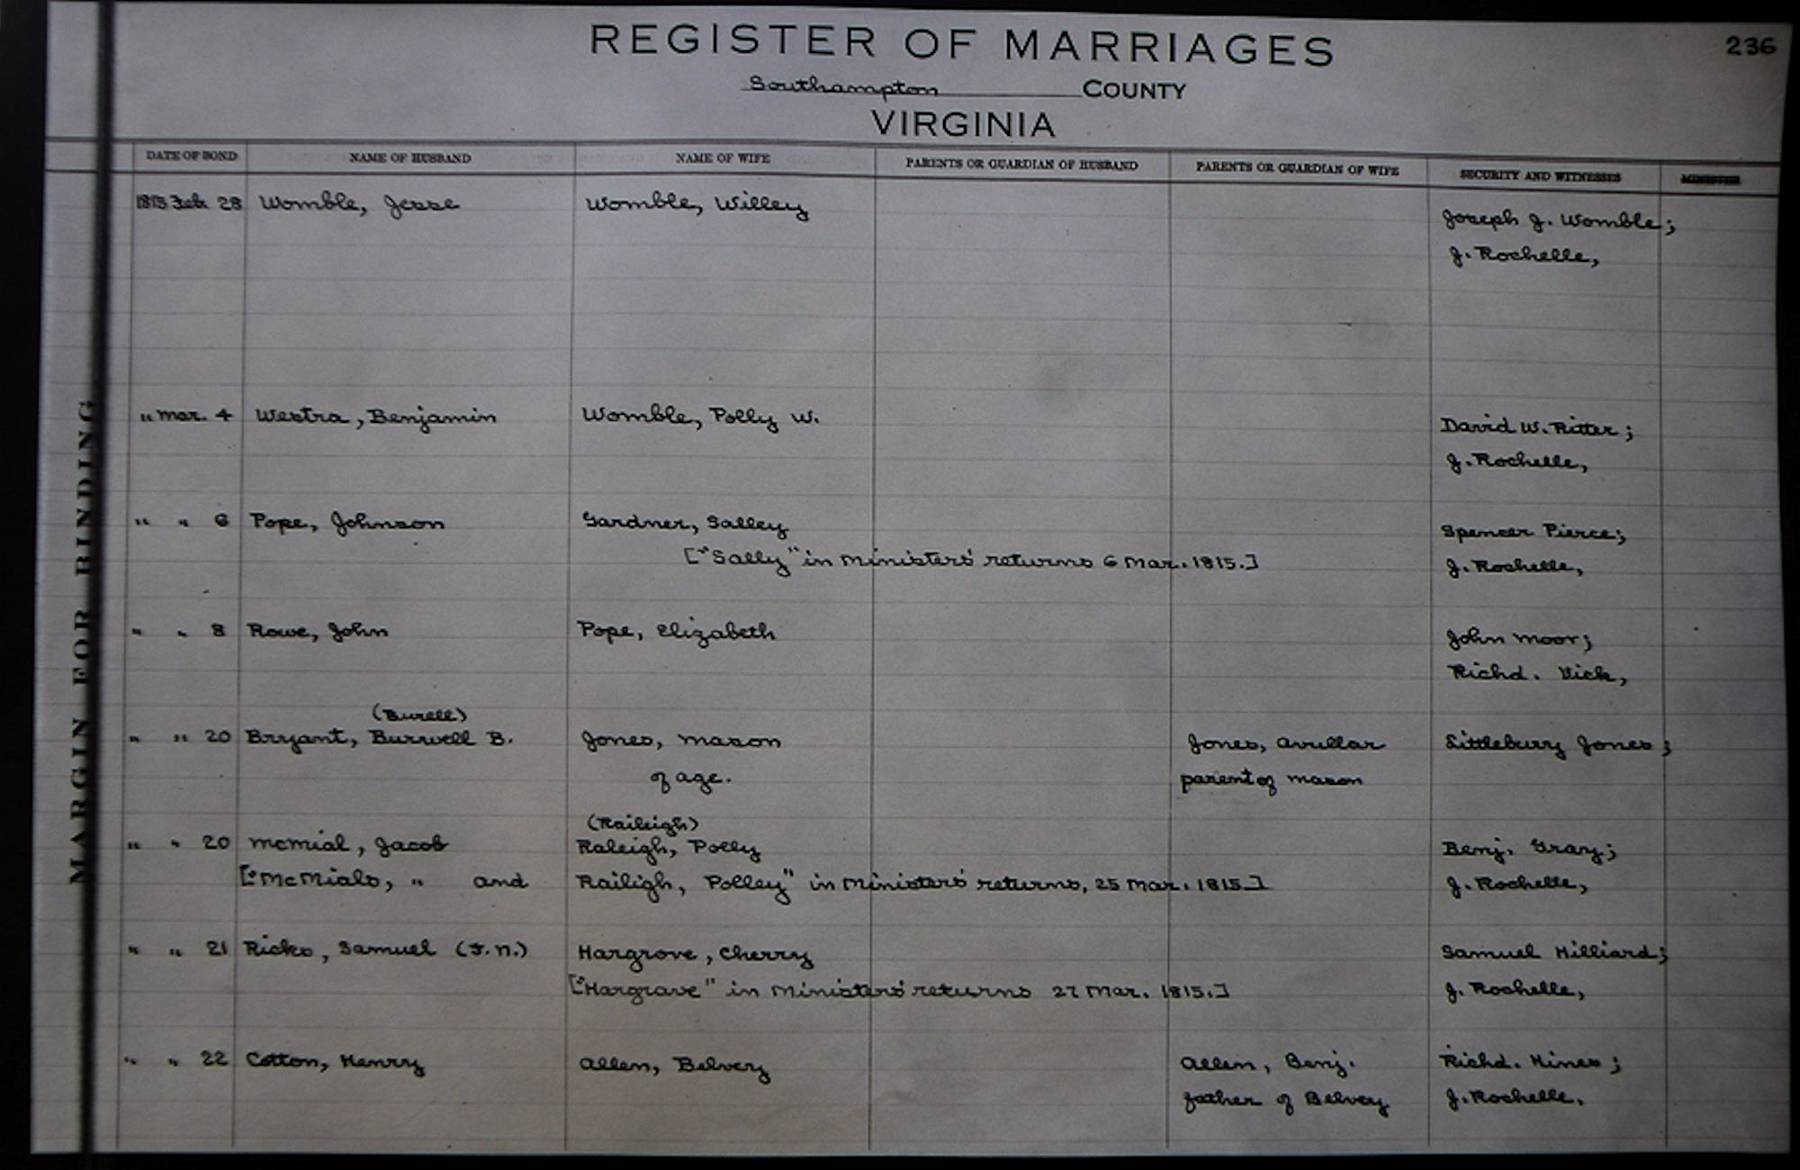 REGISTER OF MARRIAGES
236
Southampton COUNTY
VIRGINIA
DATE OF BOND NAME OF HUSBAND NAME OF WIFE PARENTS OR GUARDIAN OF HUSBAND PARENTS OR GUARDIAN OF WIFE SECURITY AND WITNESSES MINISTER
1815 Feb. 28 Womble, Jesse Womble, Willey Joseph J. Womble;
J. Rochelle,
" Mar. 4 Westra, Benjamin Womble, Polly W. David W. Ritter;
J. Rochelle,
" " 6 Pope, Johnson Gardner, Salley Spencer Pierce;
["Sally" in Ministers' returns 6 Mar. 1815.] J. Rochelle,
" " 8 Rowe, John Pope, Elizabeth John Moor;
Richd. Vick,
(Burell)
" " 20 Bryant, Burwell B. Jones, Mason Jones, Avullar Littlebury Jones;
of age. parent of Mason
(Raileigh)
" " 20 McMial, Jacob Raleigh, Polly Benj. Gray;
["McMials, " and Railigh, Polley" in Ministers' returns, 25 Mar. 1815.] J. Rochelle,
" " 21 Ricks, Samuel (F.N.) Hargrove, Cherry Samuel Hilliard;
["Hargrave" in Ministers' returns 27 Mar. 1815.] J. Rochelle,
" " 22 Cotton, Henry Allen, Belvery Allen, Benj. Richd. Hines;
father of Belvey J. Rochelle.
MARGIN FOR BINDING